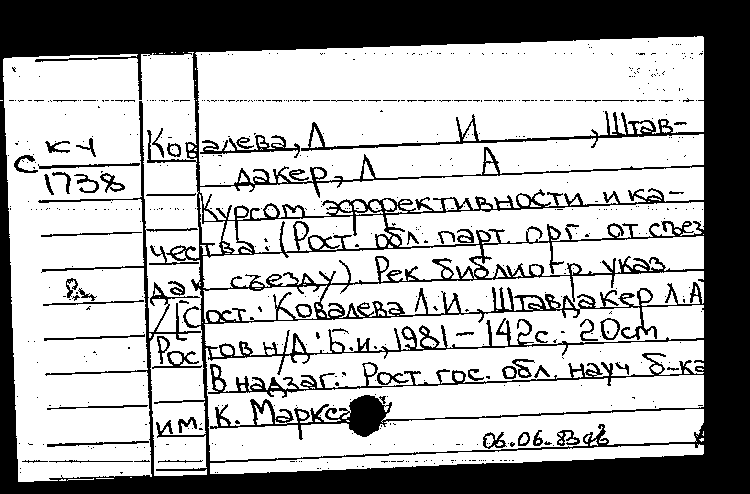 Ковалева, Л И , Штав-
С КЧ
1738
дакер, Л А
Курсом эффективности и ка-
чества: (Рост. обл. парт. орг. от съез
да к съезду). Рек библиогр. указ
/[Сост.: Ковалева Л.И., Штавдакер Л.А
Ростов н/Д: Б.и., 1981.- 142с.; 20см.
В надзаг.: Рост. гос. обл. науч. б-ка
им. К. Маркса
06.06.83